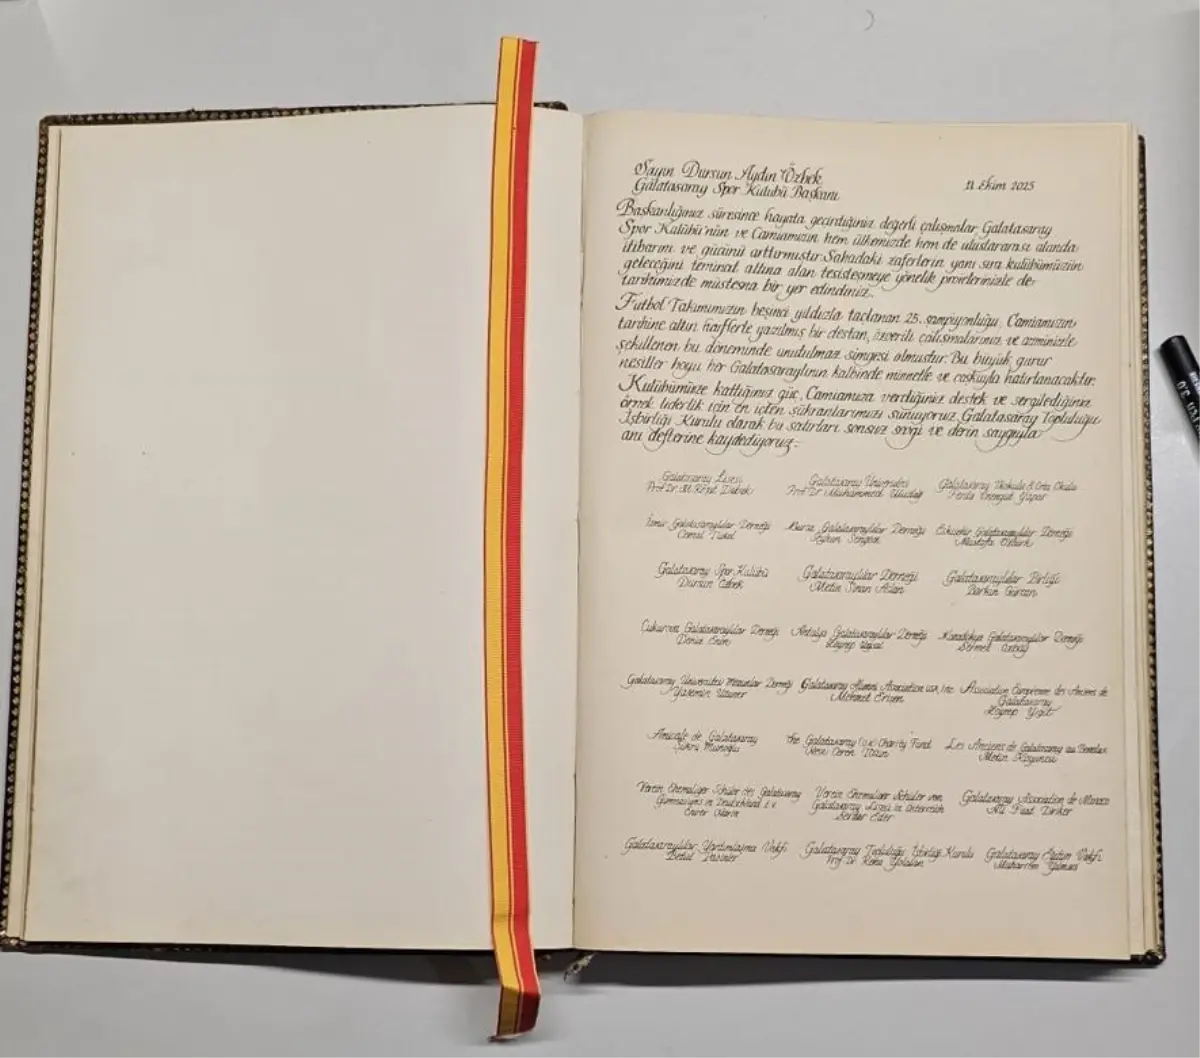 Sayın Dursun Aydın Özbek
Galatasaray Spor Kulübü Başkanı
11 Ekim 2025
Başkanlığınız süresince hayata geçirdiğiniz değerli çalışmalar Galatasaray
Spor Kulübü'nün ve Camiamızın hem ülkemizde hem de uluslararası alanda
itibarını ve gücünü arttırmıştır. Sahadaki zaferlerin yanı sıra kulübümüzün
geleceğini teminat altına alan tesisleşmeye yönelik projelerinizle de
tarihimizde müstesna bir yer edindiniz.
Futbol Takımımızın beşinci yıldızla taçlanan 25. şampiyonluğu, Camiamızın
tarihine altın harflerle yazılmış bir destan, özverili çalışmalarınız ve azminizle
şekillenen bu döneminde unutulmaz simgesi olmuştur. Bu büyük gurur
nesiller boyu her Galatasaraylının kalbinde minnetle ve coşkuyla hatırlanacaktır.
Kulübümüze kattığınız güç, Camiamıza verdiğiniz destek ve sergilediğiniz
örnek liderlik için en içten şükranlarımızı sunuyoruz. Galatasaray Topluluğu
İşbirliği Kurulu olarak bu satırları sonsuz sevgi ve derin saygıyla
anı defterine kaydediyoruz.
Galatasaray Lisesi
Prof Dr. M. Reşat Dabak
Galatasaray Üniversitesi
Prof Dr. Muhammed Uludağ
Galatasaray İlkokulu & Orta Okulu
Yapar
İzmir Galatasaraylılar Derneği
Cemal
Bursa Galatasaraylılar Derneği
Ayhan Şengöz
Eskişehir Galatasaraylılar Derneği
Mustafa Öztürk
Galatasaray Spor Kulübü
Dursun Özbek
Galatasaraylılar Derneği
Metin Sinan Aslan
Galatasaraylılar Birliği
Gürcan
Çukurova Galatasaraylılar Derneği
Deniz
Antalya Galatasaraylılar Derneği
Zeynep Uysal
Karadeniz Galatasaraylılar Derneği
Sermet
Galatasaray Üniversitesi Mezunlar Derneği
Yasemin
Galatasaray Alumni Association USA, Inc.
Mehmet Erişen
Association Européenne des Anciens de
Galatasaray
Zeynep Yiğit
Amicale de Galatasaray
Şükrü Münoğlu
The Galatasaray (U.K.) Charity Fund
Ceren
Les Anciens de Galatasaray au Benelux
Metin
Verein Ehemaliger Schüler des Galatasaray
Gymnasiums in Deutschland e.v.
Verein Ehemaliger Schüler von
Galatasaray Lisesi in Österreich
Serdar Eder
Galatasaray Association de Monaco
Ali Fuat
Galatasaraylılar Yardımlaşma Vakfı
Betül
Galatasaray Topluluğu İşbirliği Kurulu
Prof Dr.
Galatasaray Eğitim Vakfı
Muharrem Yılmaz